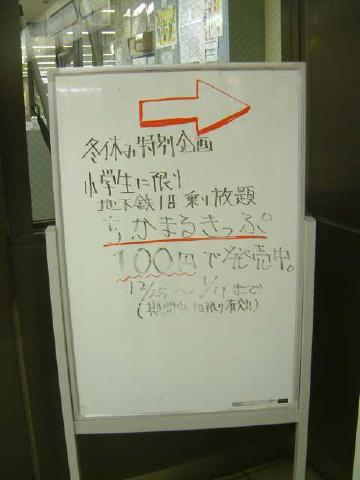 冬休み特別企画
小学生に限り
地下鉄1日乗り放題
ちかまるきっぷ
100円で発売中。
12/25～1/17まで
(期間中1日限り有効)